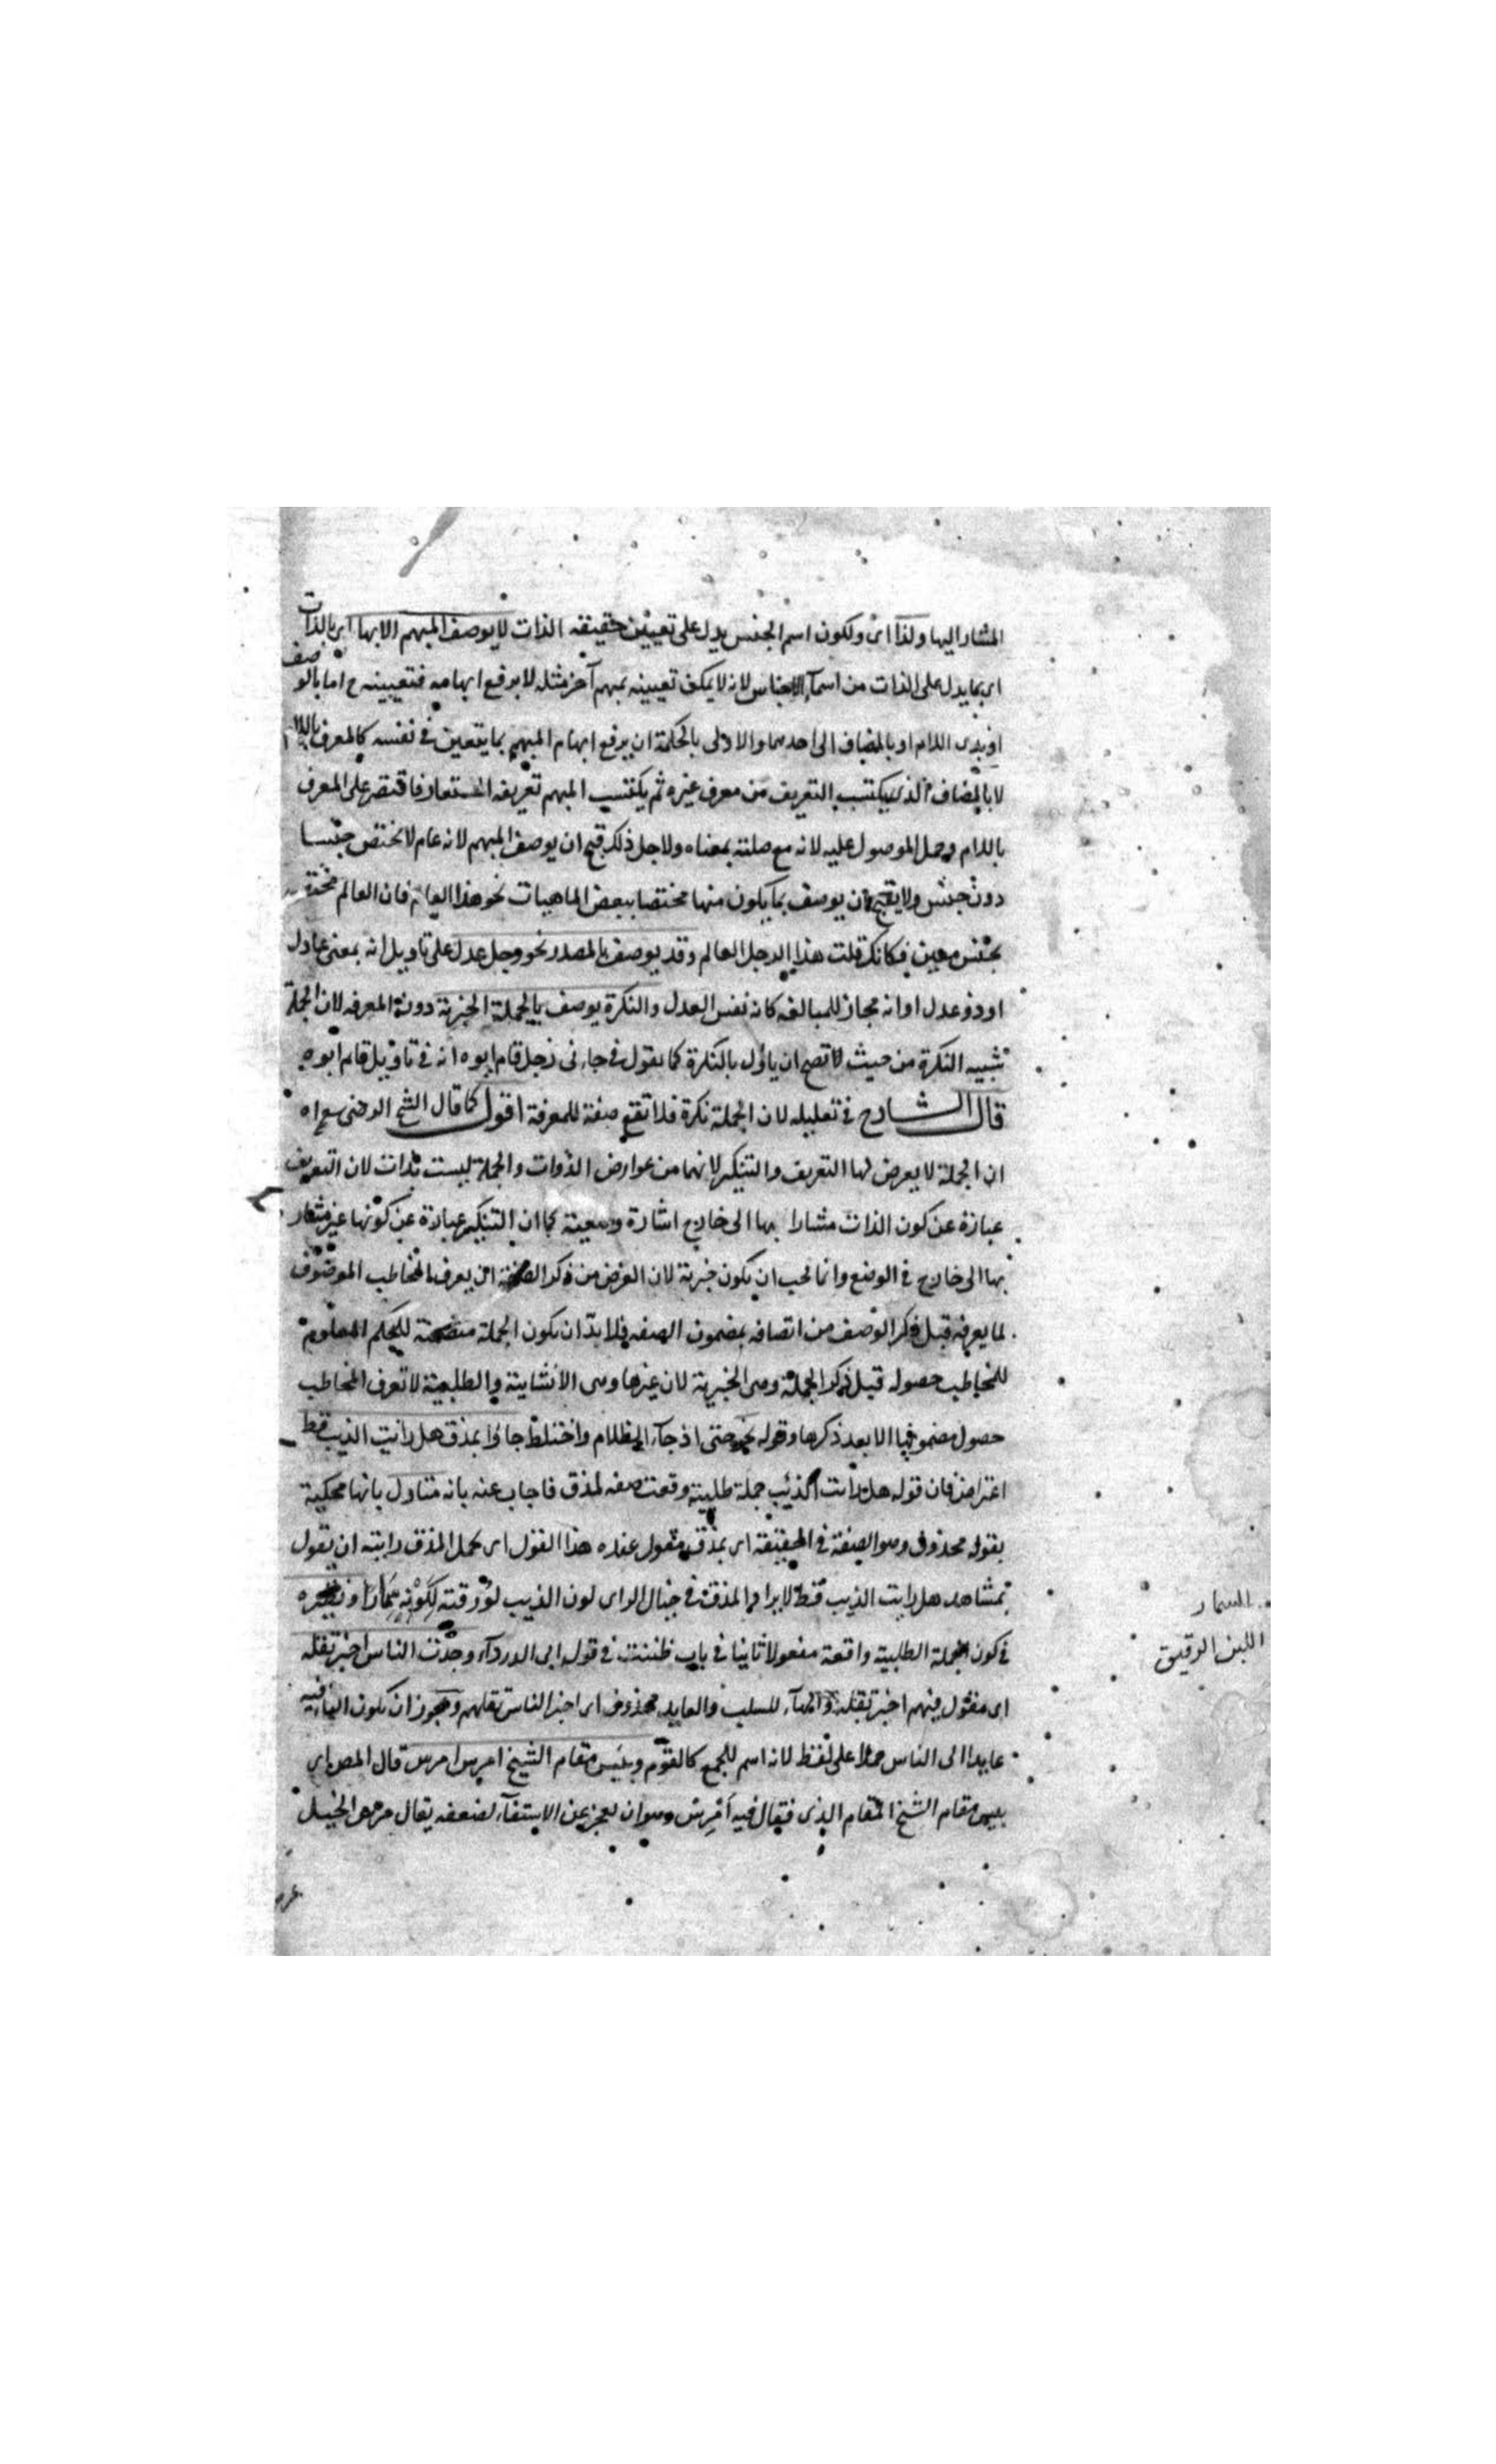 المشار اليها ولذا اى ولكون اسم الجنس يدل على تعيين حقيقة الذات لا يوصف المبهم الا بها اى بالذات
اى بما يدل على الذات من اسمآء الاجناس لانه لا يمكن تعيينه بمبهم آخر مثله لا يرفع ابهامه فتعيينه ح اما بالوصف
او بذى اللام او بالمضاف الى احدهما والاولى بالحكمة ان يرفع ابهام المبهم بما يتعين فى نفسه كالمعرف باللام
لا بالمضاف الذى يكتسب التعريف من معرف غيره ثم يكتسب المبهم تعريفه المستعار فاقتصر على المعرف
باللام وحمل الموصول عليه لانه مع صلته بمعناه ولاجل ذلك قبح ان يوصف المبهم لانه عام لا يختص جنسا
دون جنس ولا يقبح ان يوصف بما يكون منها مختصا ببعض الماهيات نحو هذا العالم فان العالم مختص
بجنس معين فكانك قلت هذا الرجل العالم وقد يوصف بالمصدر نحو رجل عدل على تاويل انه بمعنى عادل
او ذو عدل او انه مجاز للمبالغه كانه نفس العدل والنكرة يوصف بالجملة الخبرية دون المعرفه لان الجملة
تشبيه النكرة من حيث تصح ان ياؤل بالنكرة كما يقول فى جاءنى رجل قام ابوه انه فى تاويل قام ابوه
قال الشارح فى تعليله لان الجملة نكرة فلا تقع صفة للمعرفة اقول كما قال الشيخ الرضى
ان الجملة لا يعرض لها التعريف والتنكير لانهما من عوارض الذوات والجملة ليست بذات لان التعريف
عبارة عن كون الذات مشارا بها الى خارج اشارة وضعية كما ان التنكير عبارة عن كونها غير مشار
بها الى خارج فى الوضع وانما يجب ان يكون خبرية لان الغرض من ذكر الصفة ان يعرف المخاطب الموصوف
لما يعرفه قبل ذكر الوصف من اتصافه بمضمون الصفه فلا بد ان يكون الجملة متضمنة للحكم المعلوم
للمخاطب حصوله قبل ذكر الجملة وهى الخبرية لان غيرها وهى الانشايية والطلبية لا تعرف المخاطب
حصول مضمونها الا بعد ذكرها وقوله نحو حتى اذ جآء الظلام واختلط جاؤا بمذق هل رايت الذيب قط
اعتراض فان قوله هل رايت الذئب جملة طلبية وقعت صفه لمذق فاجاب عنه بانه متاول بانها محكية
بقوله محذوف وهو الصفة فى الحقيقة اى بمذق مقول عنده هذا القول اى يحمل المذق رايته ان يقول
بمشاهد هل رايت الذيب قط لايراد المذق فى خيال الراى لون الذيب لورقته لكونه سمارا ونظيره
فى كون الجملة الطلبية واقعة مفعولا ثانيا فى باب ظننت فى قول ابى الدردآء وجدت الناس اخبر تقله
اى مقول فيهم اخبر تقله والهآء للسكت والعايد محذوف اى اخبر الناس تقلهم ويجوز ان يكون الهآء فيه
عايدا الى الناس حملا على لفظ لانه اسم للجمع كالقوم وبئس مقام الشيخ امرس امرس قال المص اى
بئس مقام الشيخ المقام الذى فيقال فيه امرس وهو ان يعجز عن الاستقآء لضعفه يقال مرس الحبل
السمار
اللبن الرقيق